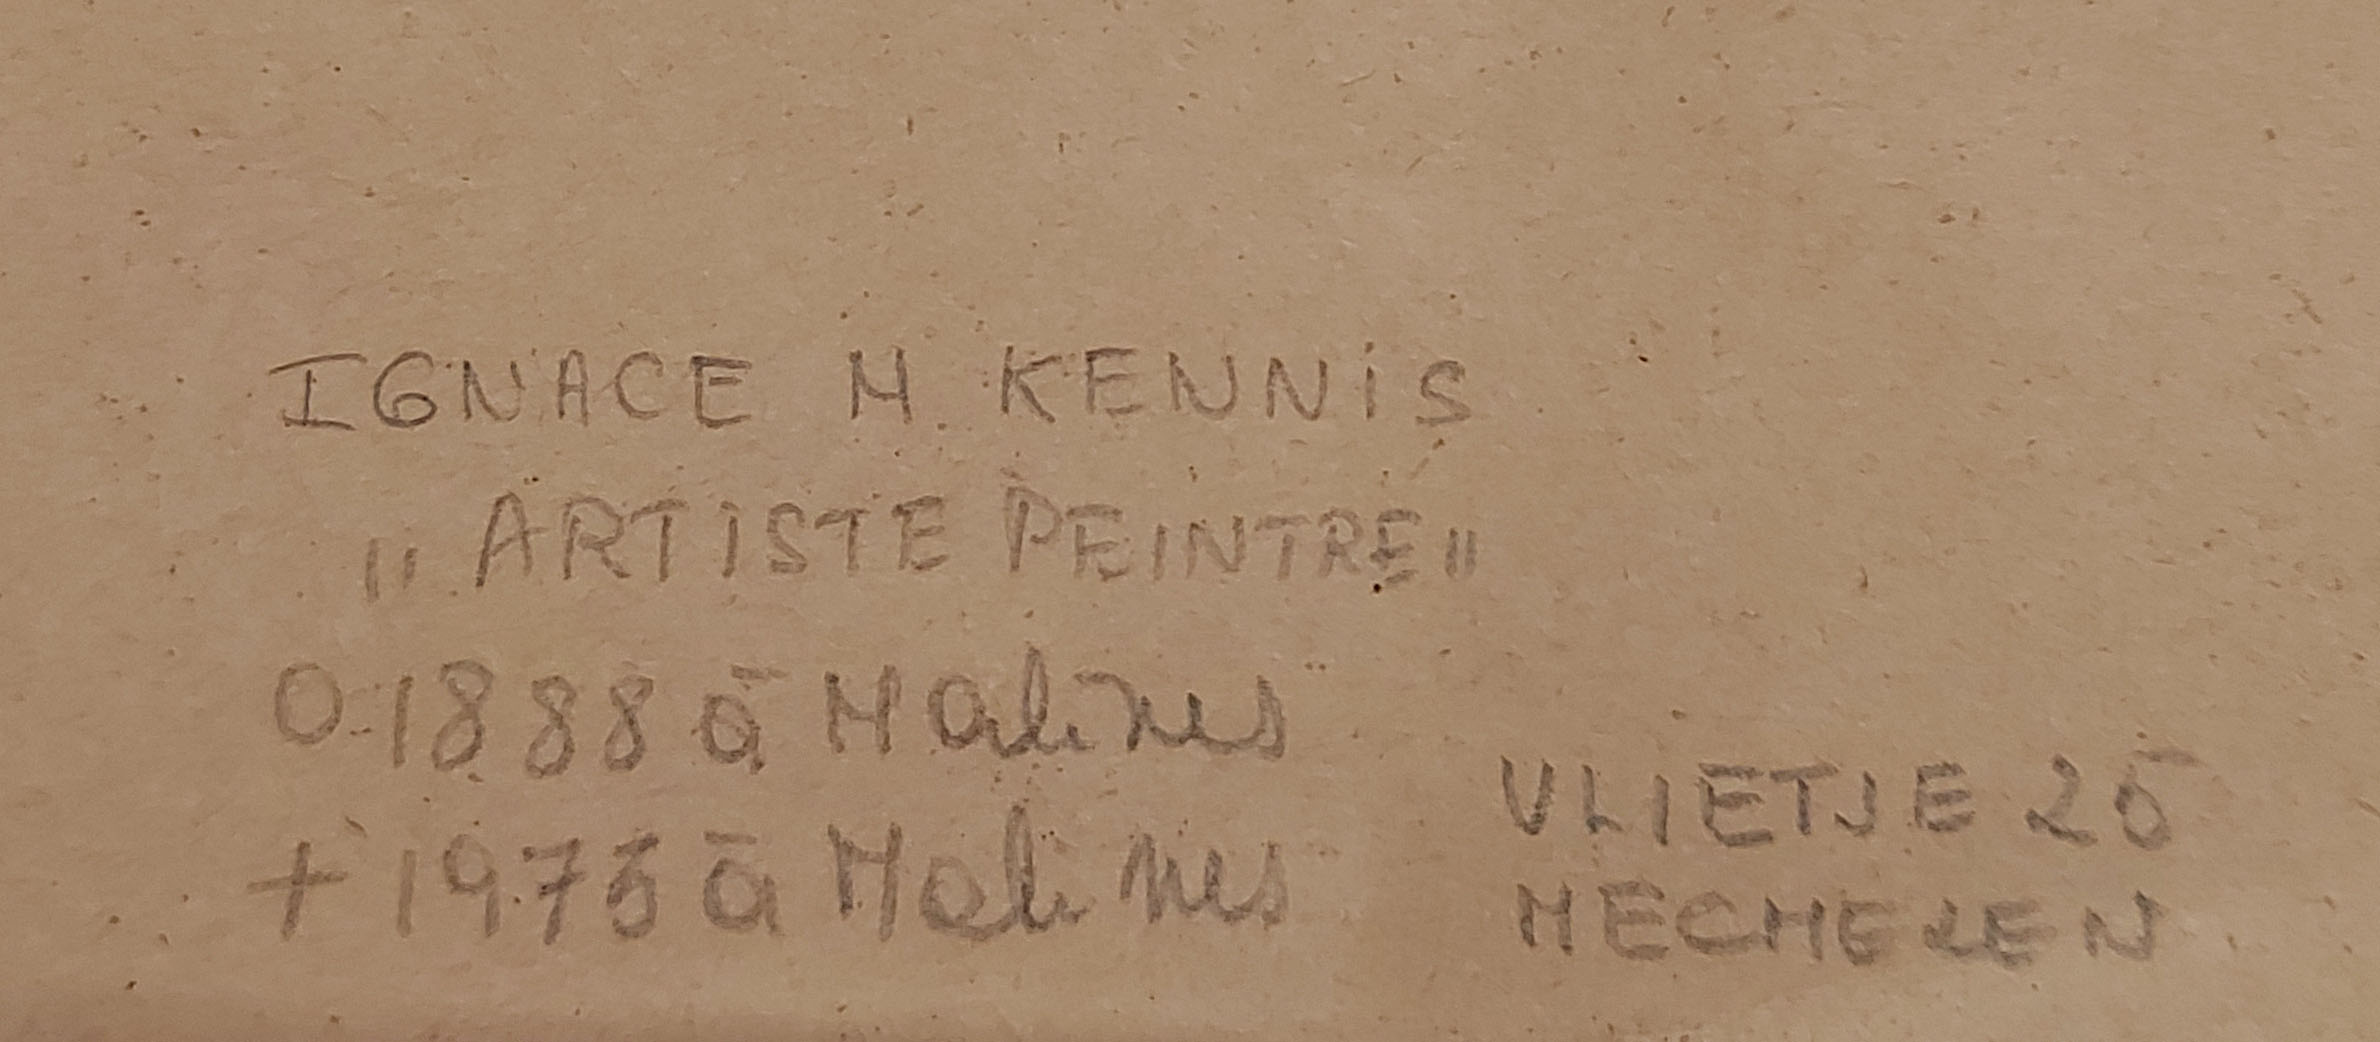 IGNACE M KENNIS
„ ARTISTE PEINTRE"
O 1888 à Malines
+ 1973 à Malines
VLIETJE 25
MECHELEN